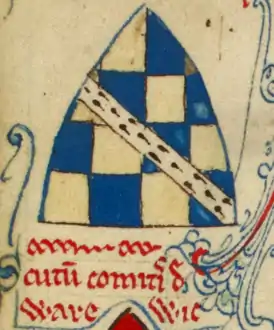 cutū comitis d
ware wic